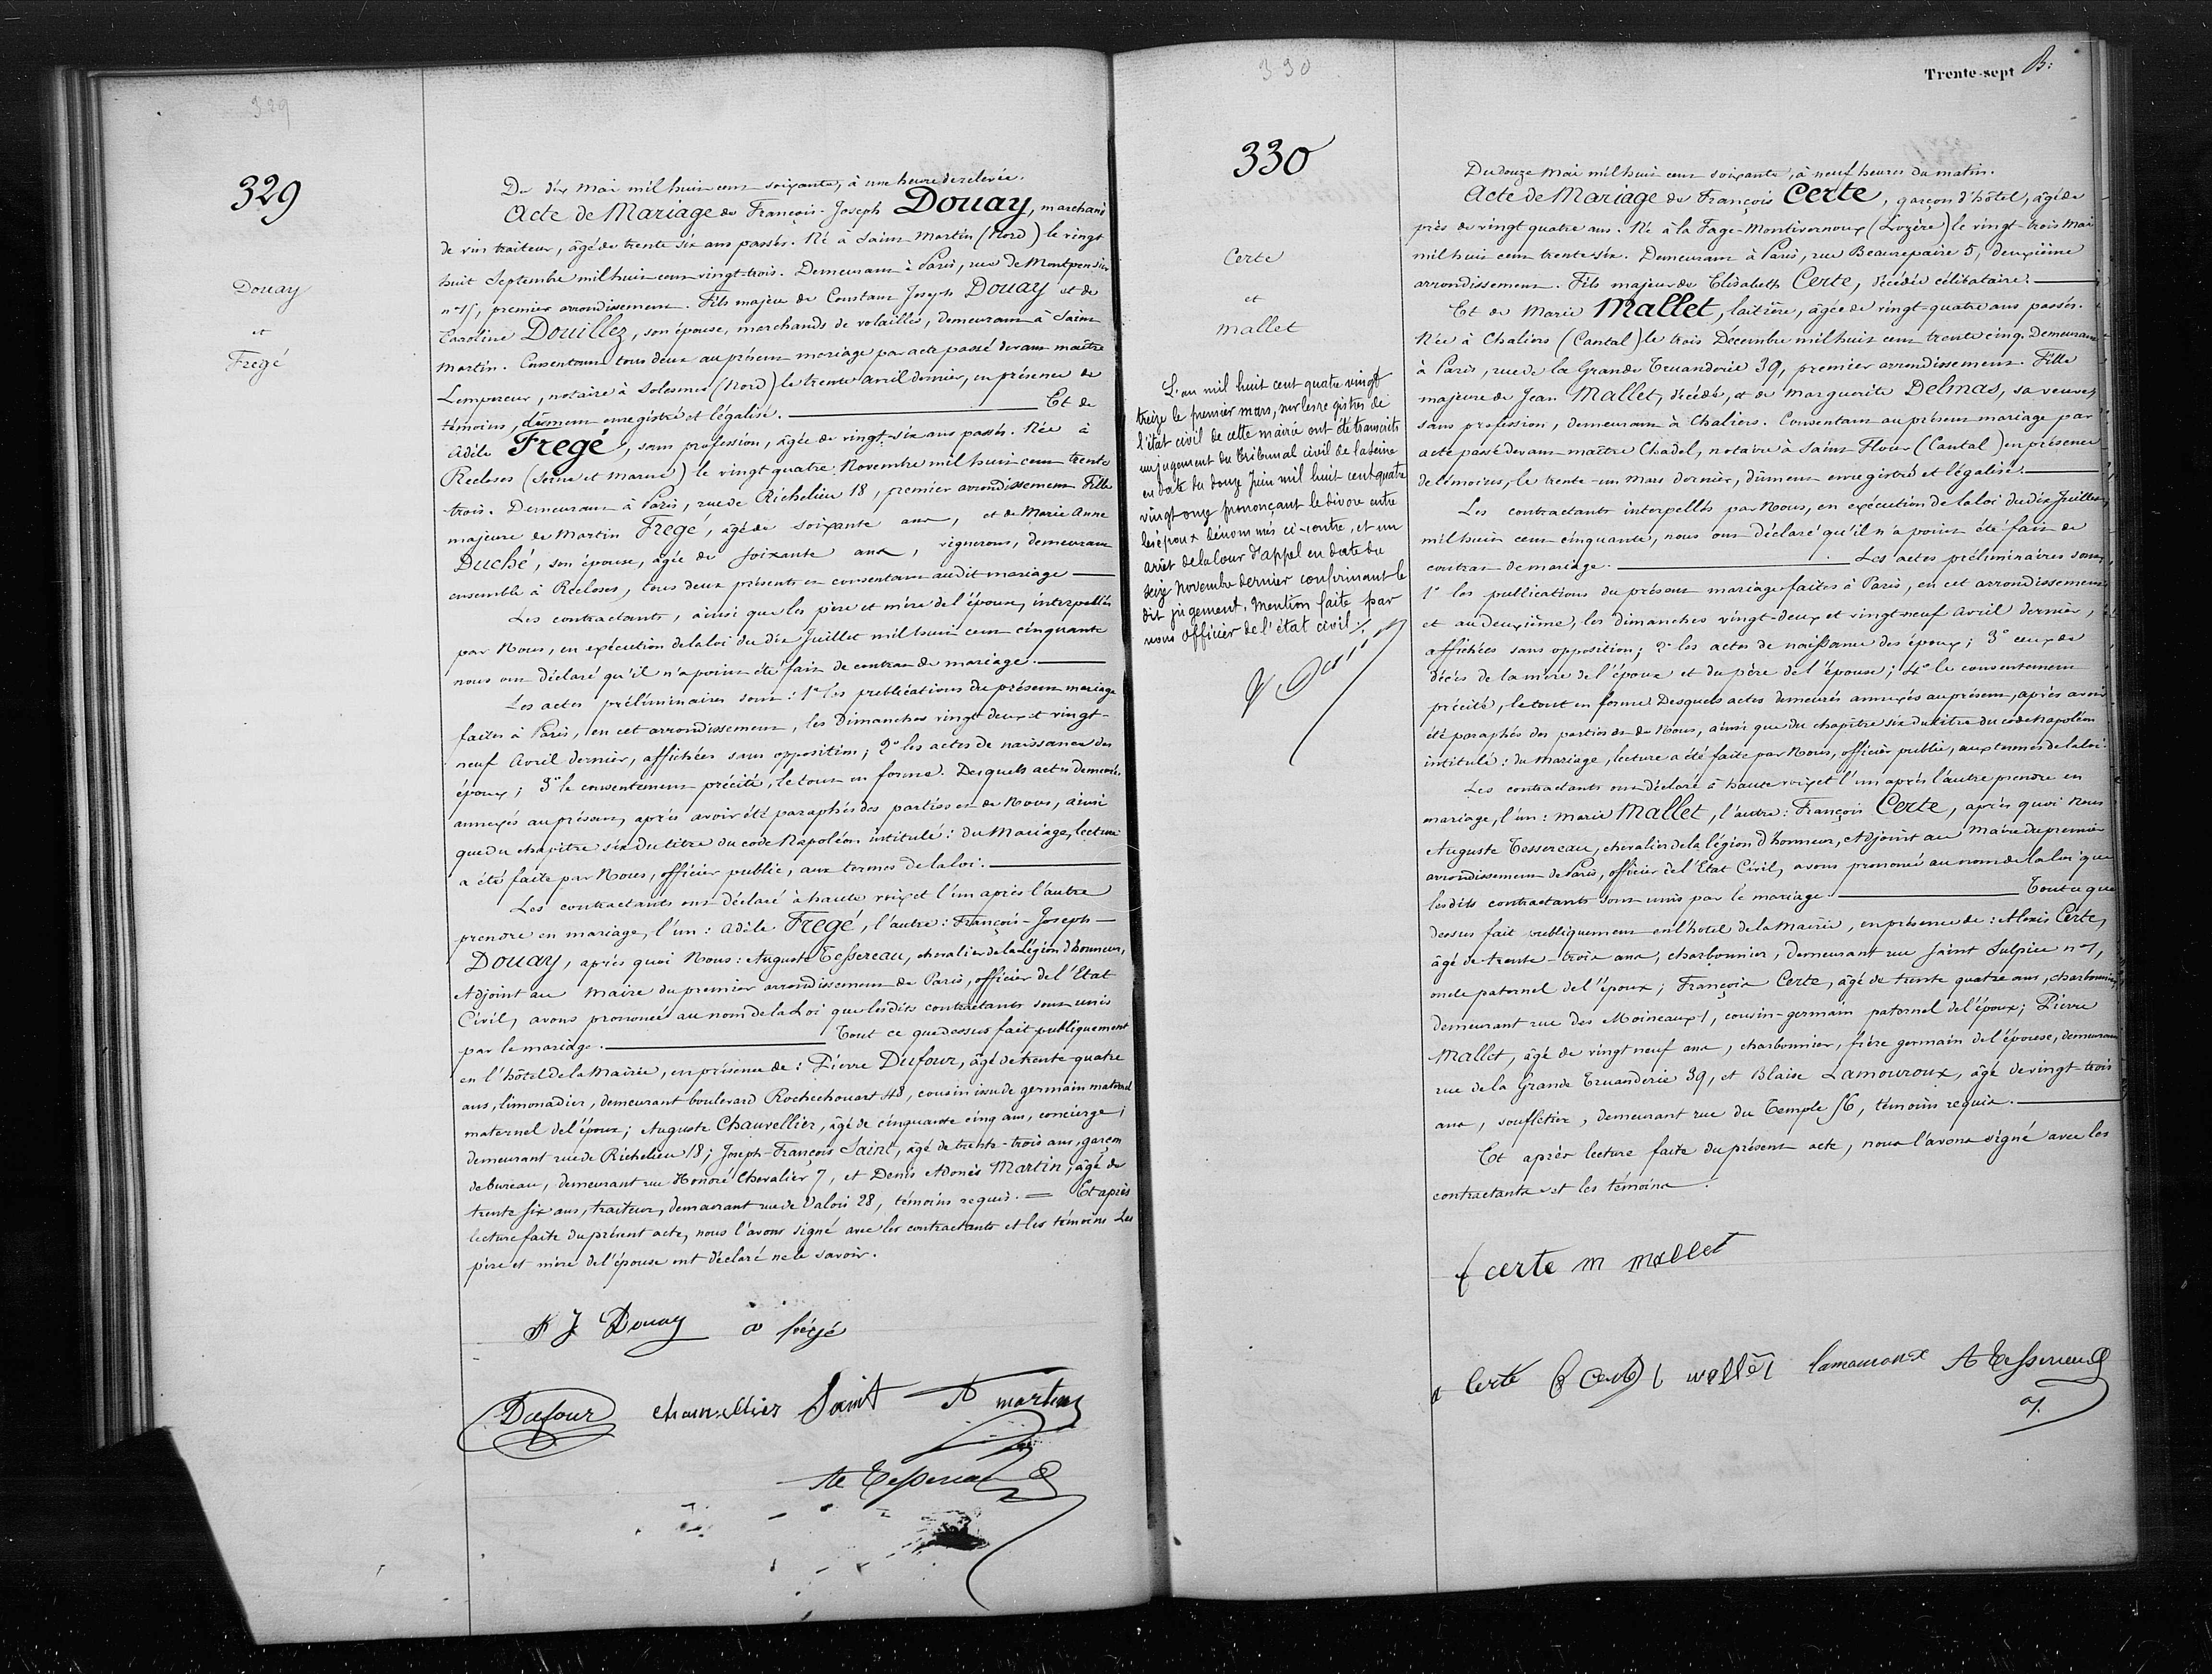 329
329
Douay
et
Fregé
Du dix mai mil huit cent soixante, à une heure de relevée.
Acte de Mariage de François-Joseph Douay, marchand
de vin traiteur, âgé de trente six ans passés. Né à Saint Martin (Nord) le vingt
huit Septembre mil huit cent vingt-trois. Demeurant à Paris, rue de Montpensier
premier arrondissement. Fils majeur de Constant Joseph Douay et de
Caroline Douillez, son épouse, marchands de volailles, demeurant à Saint
Martin. Consentant tous deux au présent mariage par acte passé devant maître
Lempereur, notaire à Solesmes (Nord) le trente avril dernier, en présence de
témoins, dûment enregistré et légalisé. Et de
Adèle Fregé, sans profession, âgée de vingt-six ans passés. Née à
Recloses (Seine et Marne) le vingt quatre Novembre mil huit cent trente
trois. Demeurant à Paris, rue de Richelieu 18, premier arrondissement. Fille
majeure de Martin Fregé, âgé de soixante ans, et de Marie Anne
Duché, son épouse, âgée de soixante ans, vignerons, demeurant
ensemble à Recloses, tous deux présents et consentant audit mariage
Les contractants, ainsi que les père et mère de l'épouse, interpellés
par Nous, en exécution de la loi du dix Juillet mil huit cent cinquante
nous ont déclaré qu'il n'a point été fait de contrat de mariage.
Les actes préliminaires sont : 1° les publications du présent mariage
faites à Paris, en cet arrondissement, les Dimanches vingt deux et vingt-
neuf Avril dernier, affichées sans opposition ; 2° les actes de naissance des
époux ; 3° le consentement précité, le tout en forme. Desquels actes demeurés
annexés au présent, après avoir été paraphés des parties et de Nous, ainsi
que du chapitre six du titre du code Napoléon intitulé : du Mariage, lecture
a été faite par Nous, officier public, aux termes de la loi.
Les contractants ont déclaré à haute voix et l'un après l'autre
prendre en mariage, l'un : Adèle Fregé, l'autre : François-Joseph
Douay, après quoi Nous : Auguste Tessereau, chevalier de la Légion d'honneur,
Adjoint au Maire du premier arrondissement de Paris, officier de l'Etat
Civil, avons prononcé au nom de la Loi que lesdits contractants sont unis
par le mariage. Tout ce que dessus fait publiquement
en l'hôtel de la Mairie, en présence de : Pierre Dufour, âgé de trente-quatre
ans, limonadier, demeurant boulevard Rochechouart 48, cousin issu de germain maternel
maternel de l'époux ; Auguste Chauvellier, âgé de cinquante cinq ans, concierge ;
demeurant rue de Richelieu 18 ; Joseph-François Saint, âgé de trente-trois ans, garçon
de bureau, demeurant rue Honoré Chevalier 7, et Denis Adonis Martin, âgé de
trente six ans, traiteur, demeurant rue de Valois 28, témoins requis. = Et après
lecture faite du présent acte, nous l'avons signé avec les contractants et les témoins Les
père et mère de l'épouse ont déclaré ne le savoir.
J Douay a frégé
Dufour chauvellier Saint A martin
Ate Tessereau
330
Trente-sept
330
Certe
et
Mallet
L'an mil huit cent quatre vingt
treize le premier mars, sur les registres de
l'état civil de cette mairie ont été transcrits
un jugement du Tribunal civil de la Seine
en date du douze Juin mil huit cent quatre
vingt onze prononçant le divorce entre
les époux dénommés ci-contre, et un
arrêt de la Cour d'appel en date du
seize Novembre dernier confirmant le
dit jugement. Mention faite par
nous officier de l'état civil
Du douze Mai mil huit cent soixante, à neuf heures du matin.
Acte de Mariage de François Certe, garçon d'hôtel, âgé de
près de vingt quatre ans. Né à la Fage-Montivernoux (Lozère) le vingt-trois Mai
mil huit cent trente six. Demeurant à Paris, rue Beaurepaire 5, deuxième
arrondissement. Fils majeur de Elisabeth Certe, décédée célibataire.
Et de Marie Mallet, laitière, âgée de vingt-quatre ans passés.
Née à Chaliers (Cantal) le trois Décembre mil huit cent trente cinq. Demeurant
à Paris, rue de la Grande Truanderie 39, premier arrondissement. Fille
majeure de Jean Mallet, décédé, et de Marguerite Delmas, sa veuve,
sans profession, demeurant à Chaliers. Consentant au présent mariage par
acte passé devant maître Chadel, notaire à Saint Flour (Cantal) en présence
de témoins, le trente-un Mars dernier, dûment enregistré et légalisé.
Les contractants interpellés par Nous, en exécution de la loi du dix Juillet
mil huit cent cinquante, nous ont déclaré qu'il n'a point été fait de
contrat de mariage. Les actes préliminaires sont
1° les publications du présent mariage faites à Paris, en cet arrondissement
et au deuxième, les dimanches vingt-deux et vingt-neuf Avril dernier,
affichées sans opposition ; 2° les actes de naissance des époux ; 3° ceux de
décès de la mère de l'époux et du père de l'épouse ; 4° le consentement
précité, le tout en forme. Desquels actes demeurés annexés au présent, après avoir
été paraphés des parties et de Nous, ainsi que du chapitre six du titre du code Napoléon
intitulé : du Mariage, lecture a été faite par Nous, officier public, aux termes de la loi.
Les contractants ont déclaré à haute voix et l'un après l'autre prendre en
mariage, l'un : Marie Mallet, l'autre : François Certe, après quoi Nous
Auguste Tessereau, chevalier de la légion d'honneur, Adjoint au Maire du premier
arrondissement de Paris, officier de l'Etat Civil, avons prononcé au nom de la loi que
lesdits contractants sont unis par le mariage. Tout ce que
dessus fait publiquement en l'hôtel de la Mairie, en présence de : Alexis Certe,
âgé de trente-trois ans, charbonnier, demeurant rue Saint Sulpice
oncle paternel de l'époux ; François Certe, âgé de trente quatre ans, charbonnier,
demeurant rue des Moineaux 1, cousin-germain paternel de l'époux ; Pierre
Mallet, âgé de vingt neuf ans, charbonnier, frère germain de l'épouse, demeurant
rue de la Grande Truanderie 39, et Blaise Lamouroux, âgé de vingt-trois
ans, souffletier, demeurant rue du Temple 56, témoins requis.
Et après lecture faite du présent acte, nous l'avons signé avec les
contractants et les témoins.
f certe m mallet
a Certe f Certe mallet lamouroux Ate Tessereau